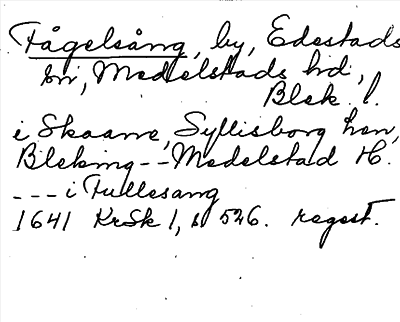 Fågelsång, by, Edestads
sn, Medelstads hd,
Blek. l.
i Skaane, Syllisborg hen,
Bleking -- Medelstad H.
--- i Fullesang
1641 KrSk 1, s 526. regest.